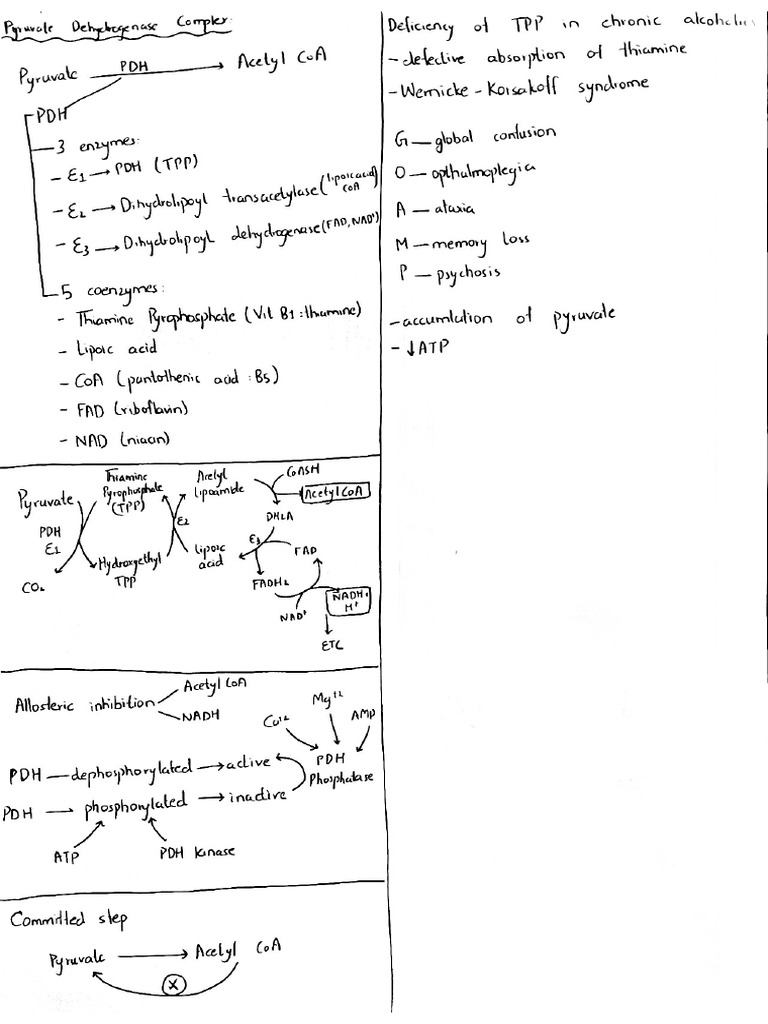 Pyruvate Dehydrogenase Complex:
Pyruvate PDH Acetyl CoA
PDH
3 enzymes:
- E1 → PDH (TPP)
- E2 → Dihydrolipoyl transacetylase (lipoic acid, CoA)
- E3 → Dihydrolipoyl dehydrogenase (FAD, NAD+)
5 coenzymes:
- Thiamine Pyrophosphate (Vit B1 : thiamine)
- Lipoic acid
- CoA (pantothenic acid : B5)
- FAD (riboflavin)
- NAD (niacin)
Pyruvate
PDH
E1
CO2
Thiamine
Pyrophosphate
(TPP)
Hydroxyethyl
TPP
E2
Acetyl
lipoamide
Lipoic
acid
CoASH
Acetyl CoA
DHLA
E3
FAD
FADH2
NAD+
NADH +
H+
ETC
Allosteric inhibition
Acetyl CoA
NADH
PDH — dephosphorylated → active
PDH — phosphorylated → inactive
ATP
PDH kinase
Ca+2
Mg+2
AMP
PDH
Phosphatase
Committed step
Pyruvate → Acetyl CoA
X
Deficiency of TPP in chronic
- defective absorption of thiamine
- Wernicke - Korsakoff syndrome
G — global confusion
O — opthalmoplegia
A — ataxia
M — memory loss
P — psychosis
- accumlation of pyruvate
- ↓ATP